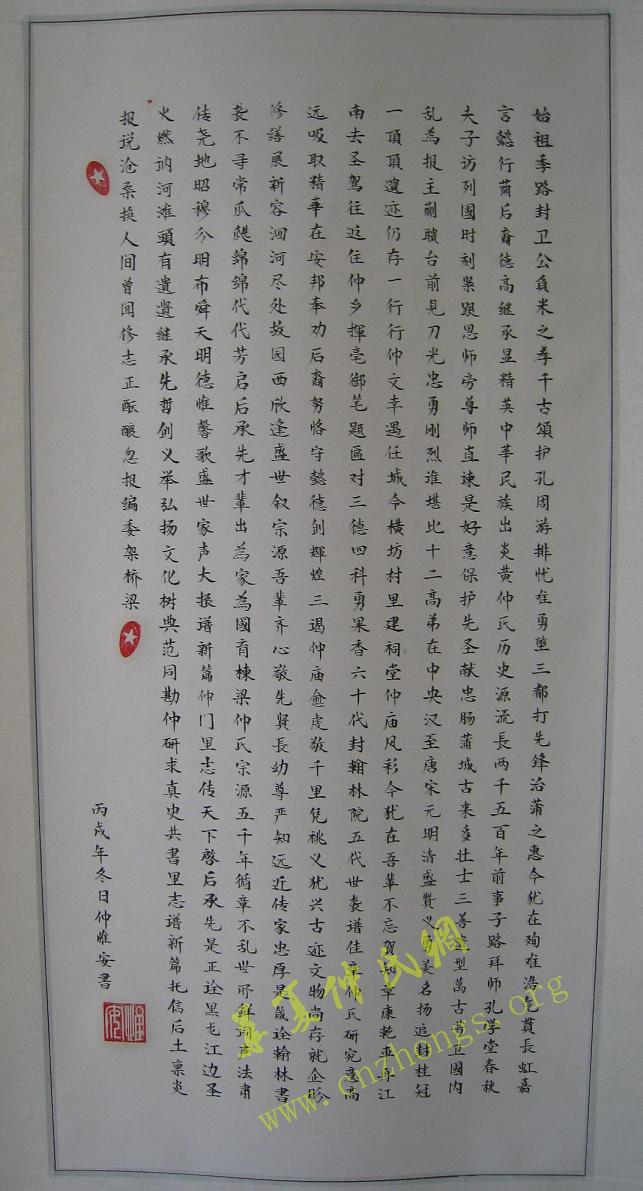 始祖季路封卫公負米之孝千古頌护孔周游排忧难勇堕三都打先鋒治蒲之惠今犹在殉难浩气貫長虹嘉
言懿行蔭后裔德高继承显精英中華民族出炎黄仲氏历史源流長两千五百年前事子路拜师孔学堂春秋
夫子访列國时刻紧跟恩师旁尊师直諫是好意保护先圣献忠肠蒲城古来多壮士三善造型萬古芳卫國内
乱為报主蒯聵台前見刀光忠勇刚烈谁堪比十二高弟在中央汉至唐宋元明清盛贊义勇美名扬追封桂冠
一頂頂遺迹仍存一行行仲文幸遇任城令横坊村里建祠堂仲庙风彩今犹在吾輩不忘賀知章康乾車舟江
南去圣駕往返住仲乡揮毫御笔題匾对三德四科勇果香六十代封翰林院五代世袭谱佳章仲氏研究意高
远吸取精華在安邦奉劝后裔努恪守懿德創輝煌三谒仲庙愈虔敬千里凭祧义犹兴古迹文物尚存就企盼
修缮展新容泗河尽处故园西欣逢盛世叙宗源吾輩齐心敬先贤長幼尊严知远近传家忠厚是箴诠翰林書
袭不寻常瓜瓞錦錦代代芳启后承先才輩出為家為國育棟梁仲氏宗源五千年循章不乱世所鲜词声法肃
传尧地昭穆分明布舜天明德惟馨歌盛世家声大振谱新篇仲门里志传天下啓后承先是正诠黑龙江边圣
火燃讷河滩頭有遺賢继承先哲創义举弘扬文化树典范同勘仲研求真史共書里志谱新篇托信后土禀炎
报说沧桑换人间曾闻修志正酝釀忽报编委架桥梁
丙戌年冬日仲惟安書
華夏仲氏網
www.cnzhongs.org